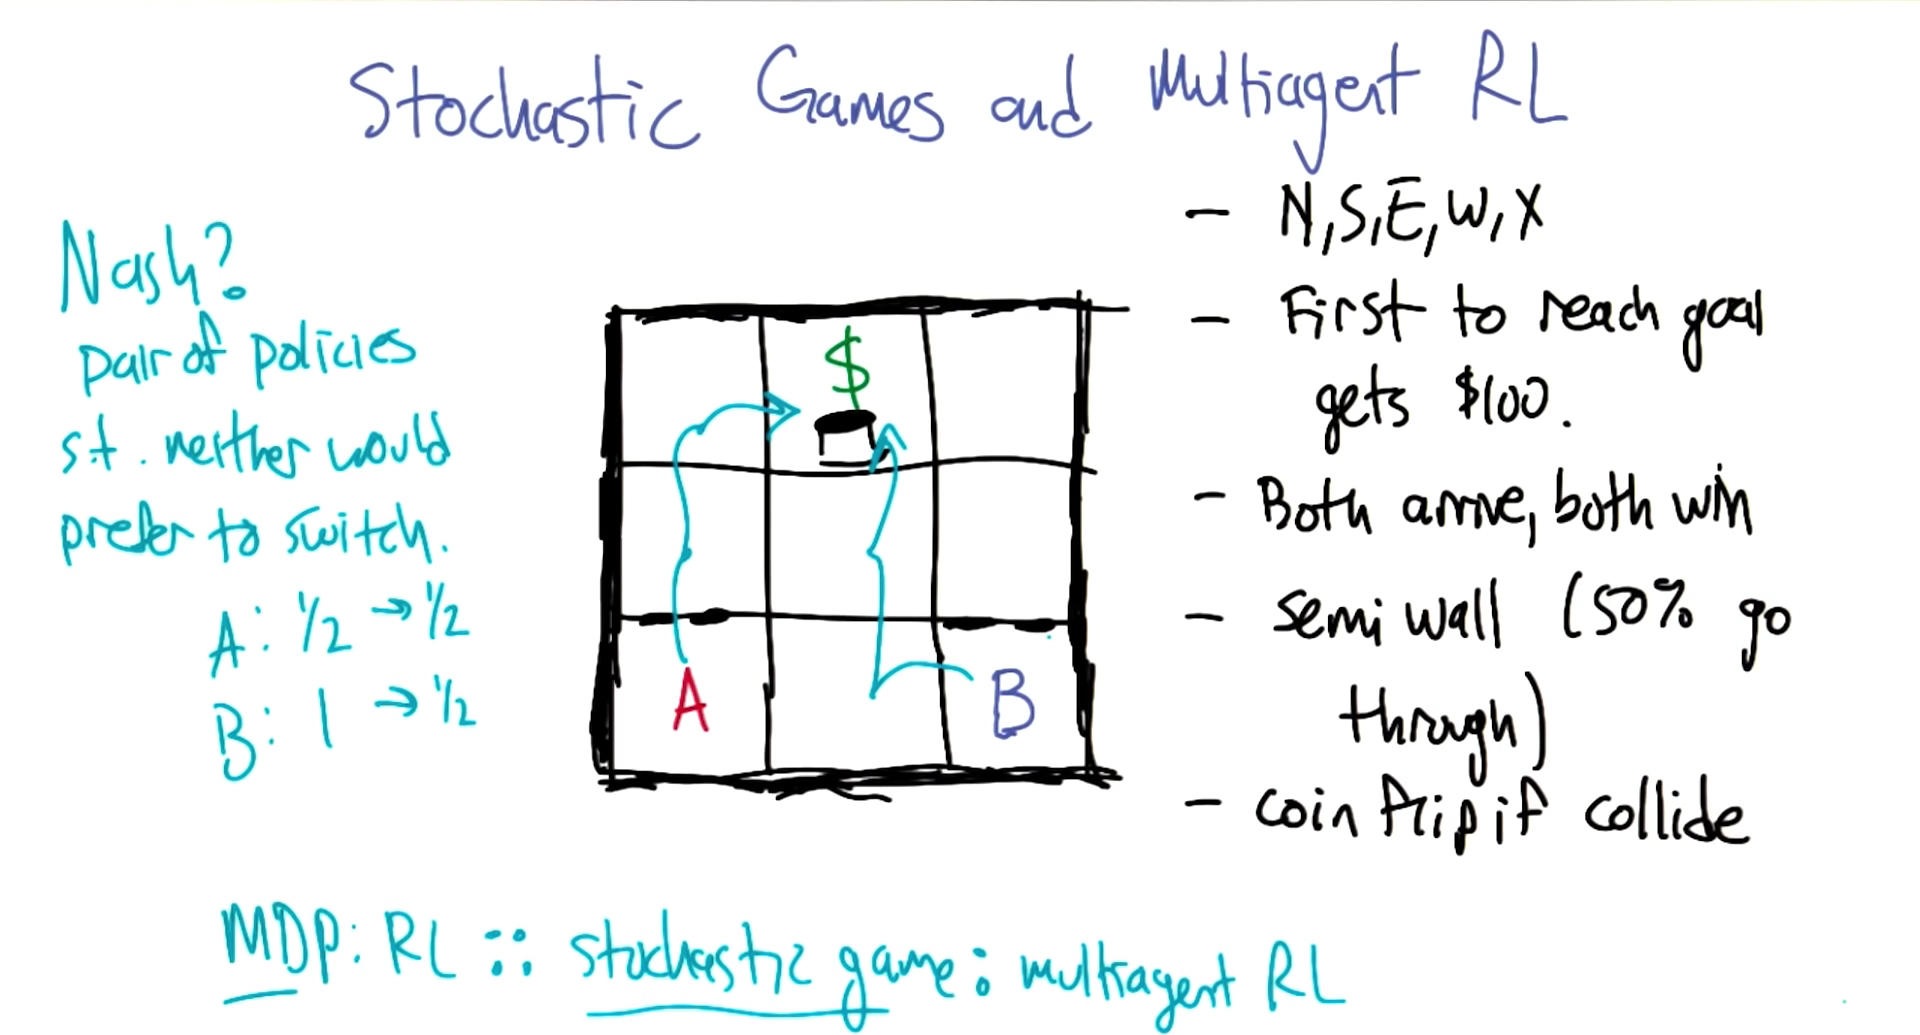 Stochastic Games and Multiagent RL
Nash?
pair of policies
s.t. neither would
prefer to switch.
A: 1/2 → 1/2
B: 1 → 1/2
$
A
B
- N, S, E, W, X
- First to reach goal
gets $100.
- Both arrive, both win
- semi wall (50% go
through)
- coin flip if collide
MDP: RL :: stochastic game: multiagent RL